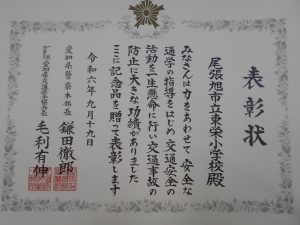 表彰状
尾張旭市立東栄小学校殿
みなさんは力をあわせて安全な
通学の指導をはじめ交通安全の
活動を一生懸命に行い交通事故の
防止に大きな功績がありました
ここに記念品を贈って表彰します
令和六年九月十九日
愛知県警察本部長 鎌田徹郎
愛知県交通安全協会会長 毛利有伸